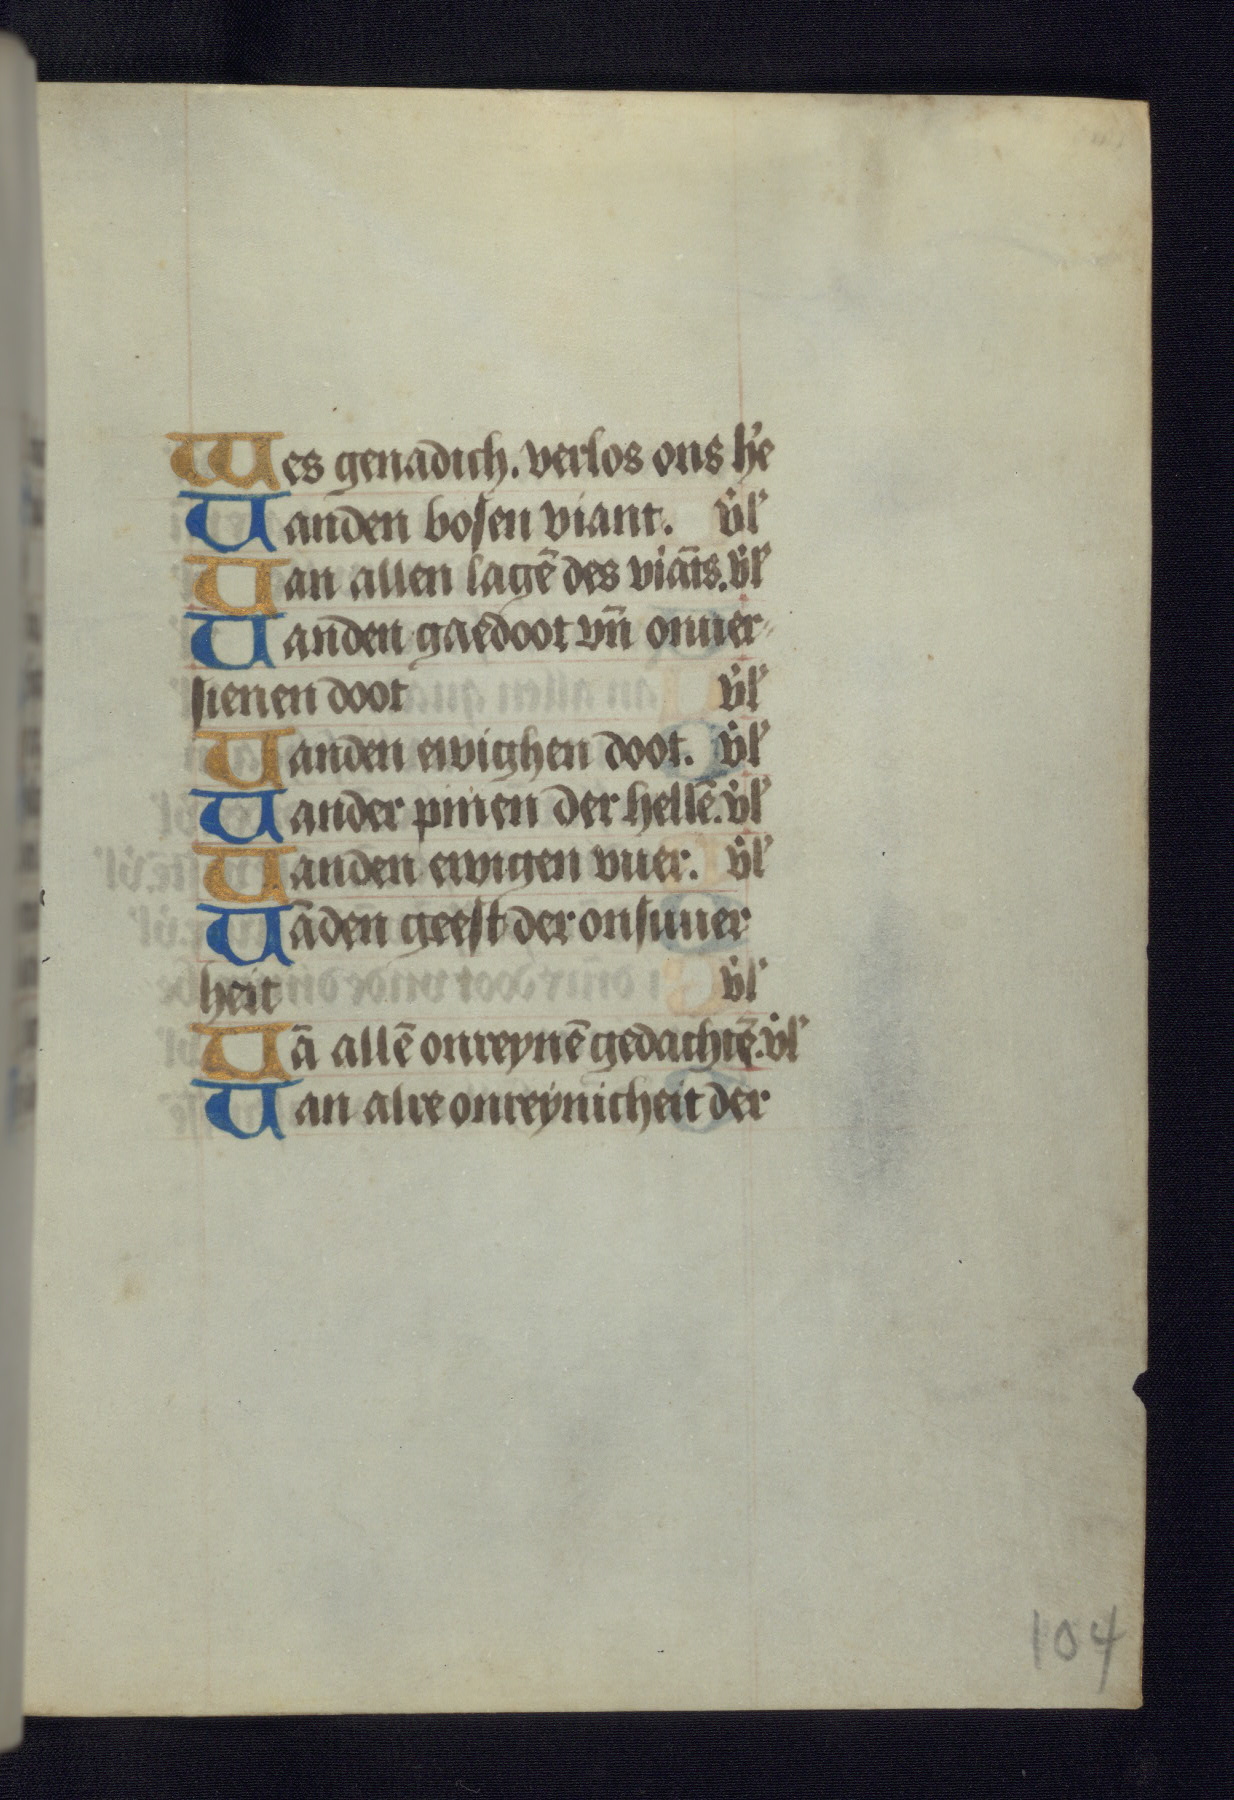 Wes genadich. verlos ons h'e
Uanden bosen viant. v̉l'
Uan allen lagē des viāts. v̉l'
Uanden gaedoot vn̄ onuer-
sienen doot v̉l'
Uanden ewighen doot. v̉l'
Uander pinen der hellē. v̉l'
Uanden ewigen vuer. v̉l'
Uāden geest der onsuuer
heit v̉l'
Uā allē onreynē gedachtē. v̉l'
Uan alre onreynicheit der
104